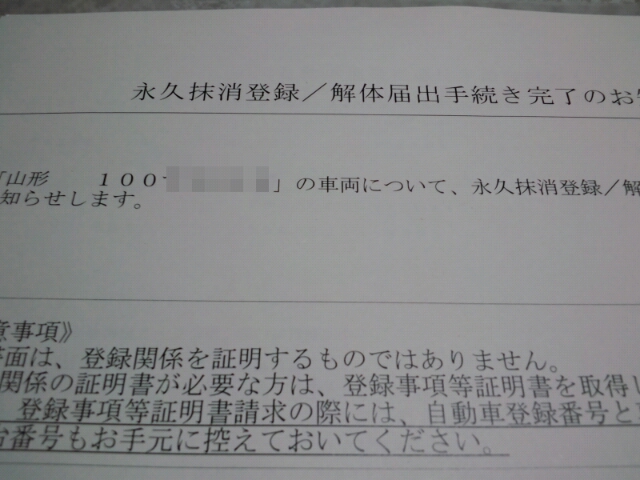 永久抹消登録／解体届出手続き完了のお
「山形　１００
」の車両について、永久抹消登録／解
知らせします。
意事項》
書面は、登録関係を証明するものではありません。
関係の証明書が必要な方は、登録事項等証明書を取得し
登録事項等証明書請求の際には、自動車登録番号と
台番号もお手元に控えておいてください。